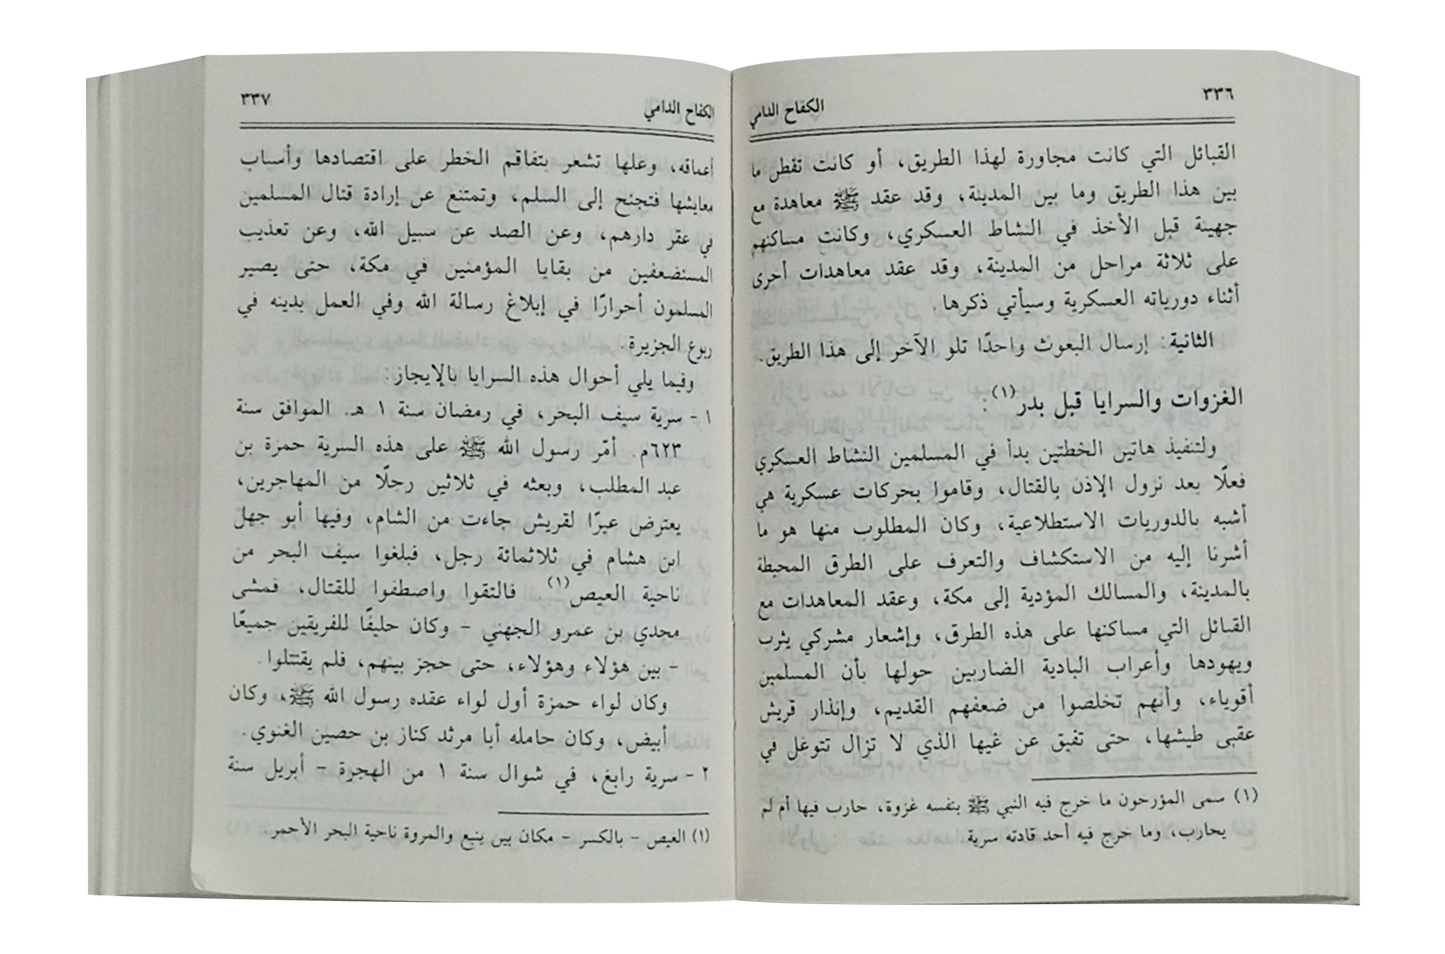 ٣٣٦
الكفاح الدامي
القبائل التي كانت مجاورة لهذا الطريق، أو كانت تقطن ما
بين هذا الطريق وما بين المدينة، وقد عقد ﷺ معاهدة مع
جهينة قبل الأخذ في النشاط العسكري، وكانت مساكنهم
على ثلاثة مراحل من المدينة، وقد عقد معاهدات أخرى
أثناء دورياته العسكرية وسيأتي ذكرها.
الثانية: إرسال البعوث واحدًا تلو الآخر إلى هذا الطريق.
الغزوات والسرايا قبل بدر(١):
ولتنفيذ هاتين الخطتين بدأ في المسلمين النشاط العسكري
فعلًا بعد نزول الإذن بالقتال، وقاموا بحركات عسكرية هي
أشبه بالدوريات الاستطلاعية، وكان المطلوب منها هو ما
أشرنا إليه من الاستكشاف والتعرف على الطرق المحيطة
بالمدينة، والمسالك المؤدية إلى مكة، وعقد المعاهدات مع
القبائل التي مساكنها على هذه الطرق، وإشعار مشركي يثرب
ويهودها وأعراب البادية الضاربين حولها بأن المسلمين
أقوياء، وأنهم تخلصوا من ضعفهم القديم، وإنذار قريش
عقبى طيشها، حتى تفيق عن غيها الذي لا تزال تتوغل في
(١) سمى المؤرخون ما خرج فيه النبي ﷺ بنفسه غزوة، حارب فيها أم لم
يحارب، وما خرج فيه أحد قادته سرية
٣٣٧
الكفاح الدامي
أعماقه، وعلها تشعر بتفاقم الخطر على اقتصادها وأسباب
معايشها فتجنح إلى السلم، وتمتنع عن إرادة قتال المسلمين
في عقر دارهم، وعن الصد عن سبيل الله، وعن تعذيب
المستضعفين من بقايا المؤمنين في مكة، حتى يصير
المسلمون أحرارًا في إبلاغ رسالة الله وفي العمل بدينه في
ربوع الجزيرة.
وفيما يلي أحوال هذه السرايا بالإيجاز:
١ - سرية سيف البحر، في رمضان سنة ١ هـ. الموافق سنة
٦٢٣م. أمّر رسول الله ﷺ على هذه السرية حمزة بن
عبد المطلب، وبعثه في ثلاثين رجلًا من المهاجرين،
يعترض عيرًا لقريش جاءت من الشام، وفيها أبو جهل
ابن هشام في ثلاثمائة رجل، فبلغوا سيف البحر من
ناحية العيص(١). فالتقوا واصطفوا للقتال، فمشى
مجدي بن عمرو الجهني - وكان حليفًا للفريقين جميعًا
- بين هؤلاء وهؤلاء، حتى حجز بينهم، فلم يقتتلوا.
وكان لواء حمزة أول لواء عقده رسول الله ﷺ، وكان
أبيض، وكان حامله أبا مرثد كناز بن حصين الغنوي.
٢ - سرية رابغ، في شوال سنة ١ من الهجرة - أبريل سنة
(١) العيص - بالكسر - مكان بين ينبع والمروة ناحية البحر الأحمر.